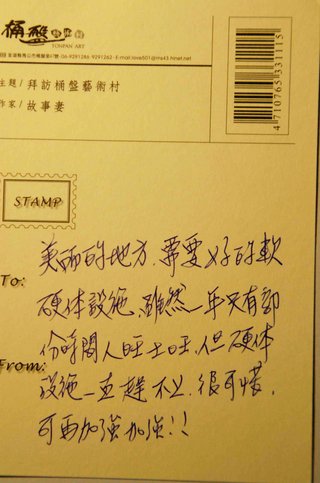 桶盤藝術村
TONPAN ART
4710765331115
主題/ 拜訪桶盤藝術村
作家/ 故事妻
STAMP
To:
From:
美丽的地方.需要好的軟
硬体設施.雖然一年只有部
份時間人旺土旺,但硬体
設施一直趕不上.很可惜.
可再加強加強!!